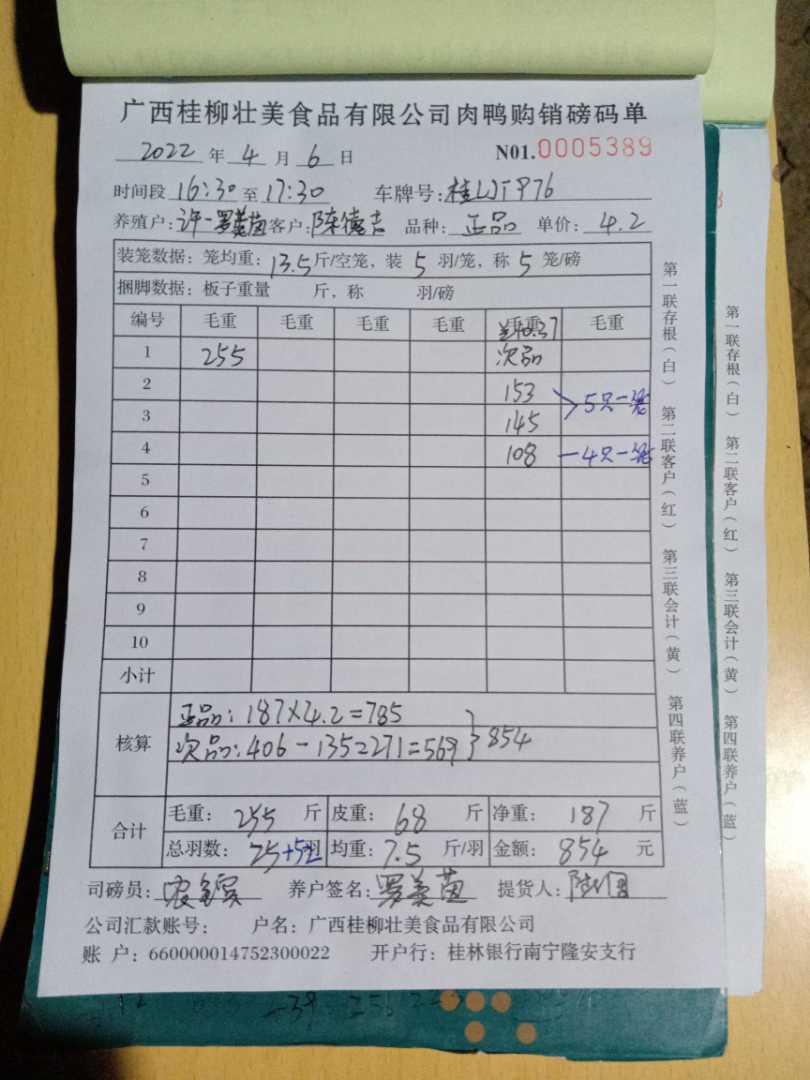 广西桂柳壮美食品有限公司肉鸭购销磅码单
2022 年 4 月 6 日 N01.0005389
时间段 16:30 至 17:30 车牌号:
养殖户: 客户: 陈德吉 品种: 正品 单价: 4.2
装笼数据: 笼均重: 13.5 斤/空笼, 装 5 羽/笼, 称 5 笼/磅
捆脚数据: 板子重量 斤, 称 羽/磅
编号 毛重 毛重 毛重 毛重 毛重 毛重
1 255 次品
2 153
3 145 5只一笼
4 108 一4只一笼
5
6
7
8
9
10
小计
核算
正品: 187×4.2=785
次品: 406-135=271=569 } 854
合计
毛重: 255 斤 皮重: 68 斤 净重: 187 斤
总羽数: 25+52羽 均重: 7.5 斤/羽 金额: 854 元
司磅员: 养户签名: 罗美茵 提货人:
公司汇款账号: 户名: 广西桂柳壮美食品有限公司
账 户: 660000014752300022 开户行: 桂林银行南宁隆安支行
第一联存根(白) 第二联客户(红) 第三联会计(黄) 第四联养户(蓝)
第一联存根(白) 第二联客户(红) 第三联会计(黄) 第四联养户(蓝)